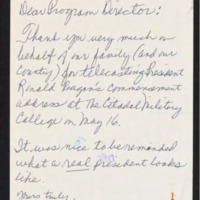 Dear Program Director:
Thank you very much on
behalf of our family (and our
County) for telecasting President
Ronald Reagan's commencement
address at the Citadel Military
College on May 16.
It was nice to be reminded
what a real president looks
like.
Yours truly,